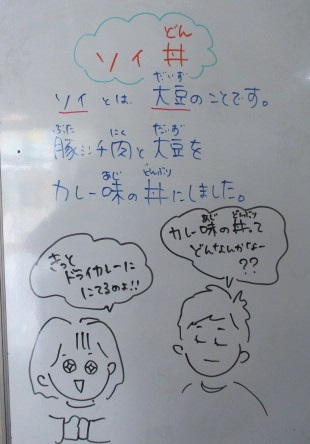 どん
ソイ丼
だいず
ソイとは大豆のことです。
ぶた にく だいず
豚ミンチ肉と大豆を
あじ どんぶり
カレー味の丼にしました。
きっと
ドライカレーに
にてるのよ!!
あじ どんぶり
カレー味の丼って
どんなんかなー
??